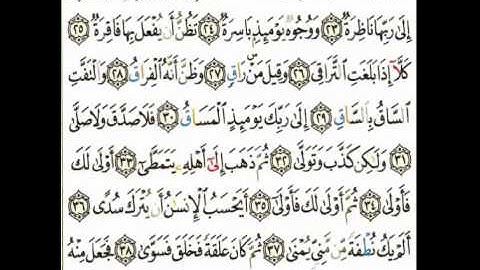 إِلَىٰ رَبِّهَا نَاظِرَةٌ ٢٣ وَوُجُوهٌ يَوْمَئِذٍ بَاسِرَةٌ ٢٤ تَظُنُّ أَن يُفْعَلَ بِهَا فَاقِرَةٌ ٢٥
كَلَّا إِذَا بَلَغَتِ التَّرَاقِيَ ٢٦ وَقِيلَ مَنْ رَاقٍ ٢٧ وَظَنَّ أَنَّهُ الْفِرَاقُ ٢٨ وَالْتَفَّتِ
السَّاقُ بِالسَّاقِ ٢٩ إِلَىٰ رَبِّكَ يَوْمَئِذٍ الْمَسَاقُ ٣٠ فَلَا صَدَّقَ وَلَا صَلَّىٰ
٣١ وَلَٰكِن كَذَّبَ وَتَوَلَّىٰ ٣٢ ثُمَّ ذَهَبَ إِلَىٰ أَهْلِهِ يَتَمَطَّىٰ ٣٣ أَوْلَىٰ لَكَ
فَأَوْلَىٰ ٣٤ ثُمَّ أَوْلَىٰ لَكَ فَأَوْلَىٰ ٣٥ أَيَحْسَبُ الْإِنسَٰنُ أَن يُتْرَكَ سُدًى ٣٦
أَلَمْ يَكُ نُطْفَةً مِّن مَّنِيٍّ يُمْنَىٰ ٣٧ ثُمَّ كَانَ عَلَقَةً فَخَلَقَ فَسَوَّىٰ ٣٨ فَجَعَلَ مِنْهُ